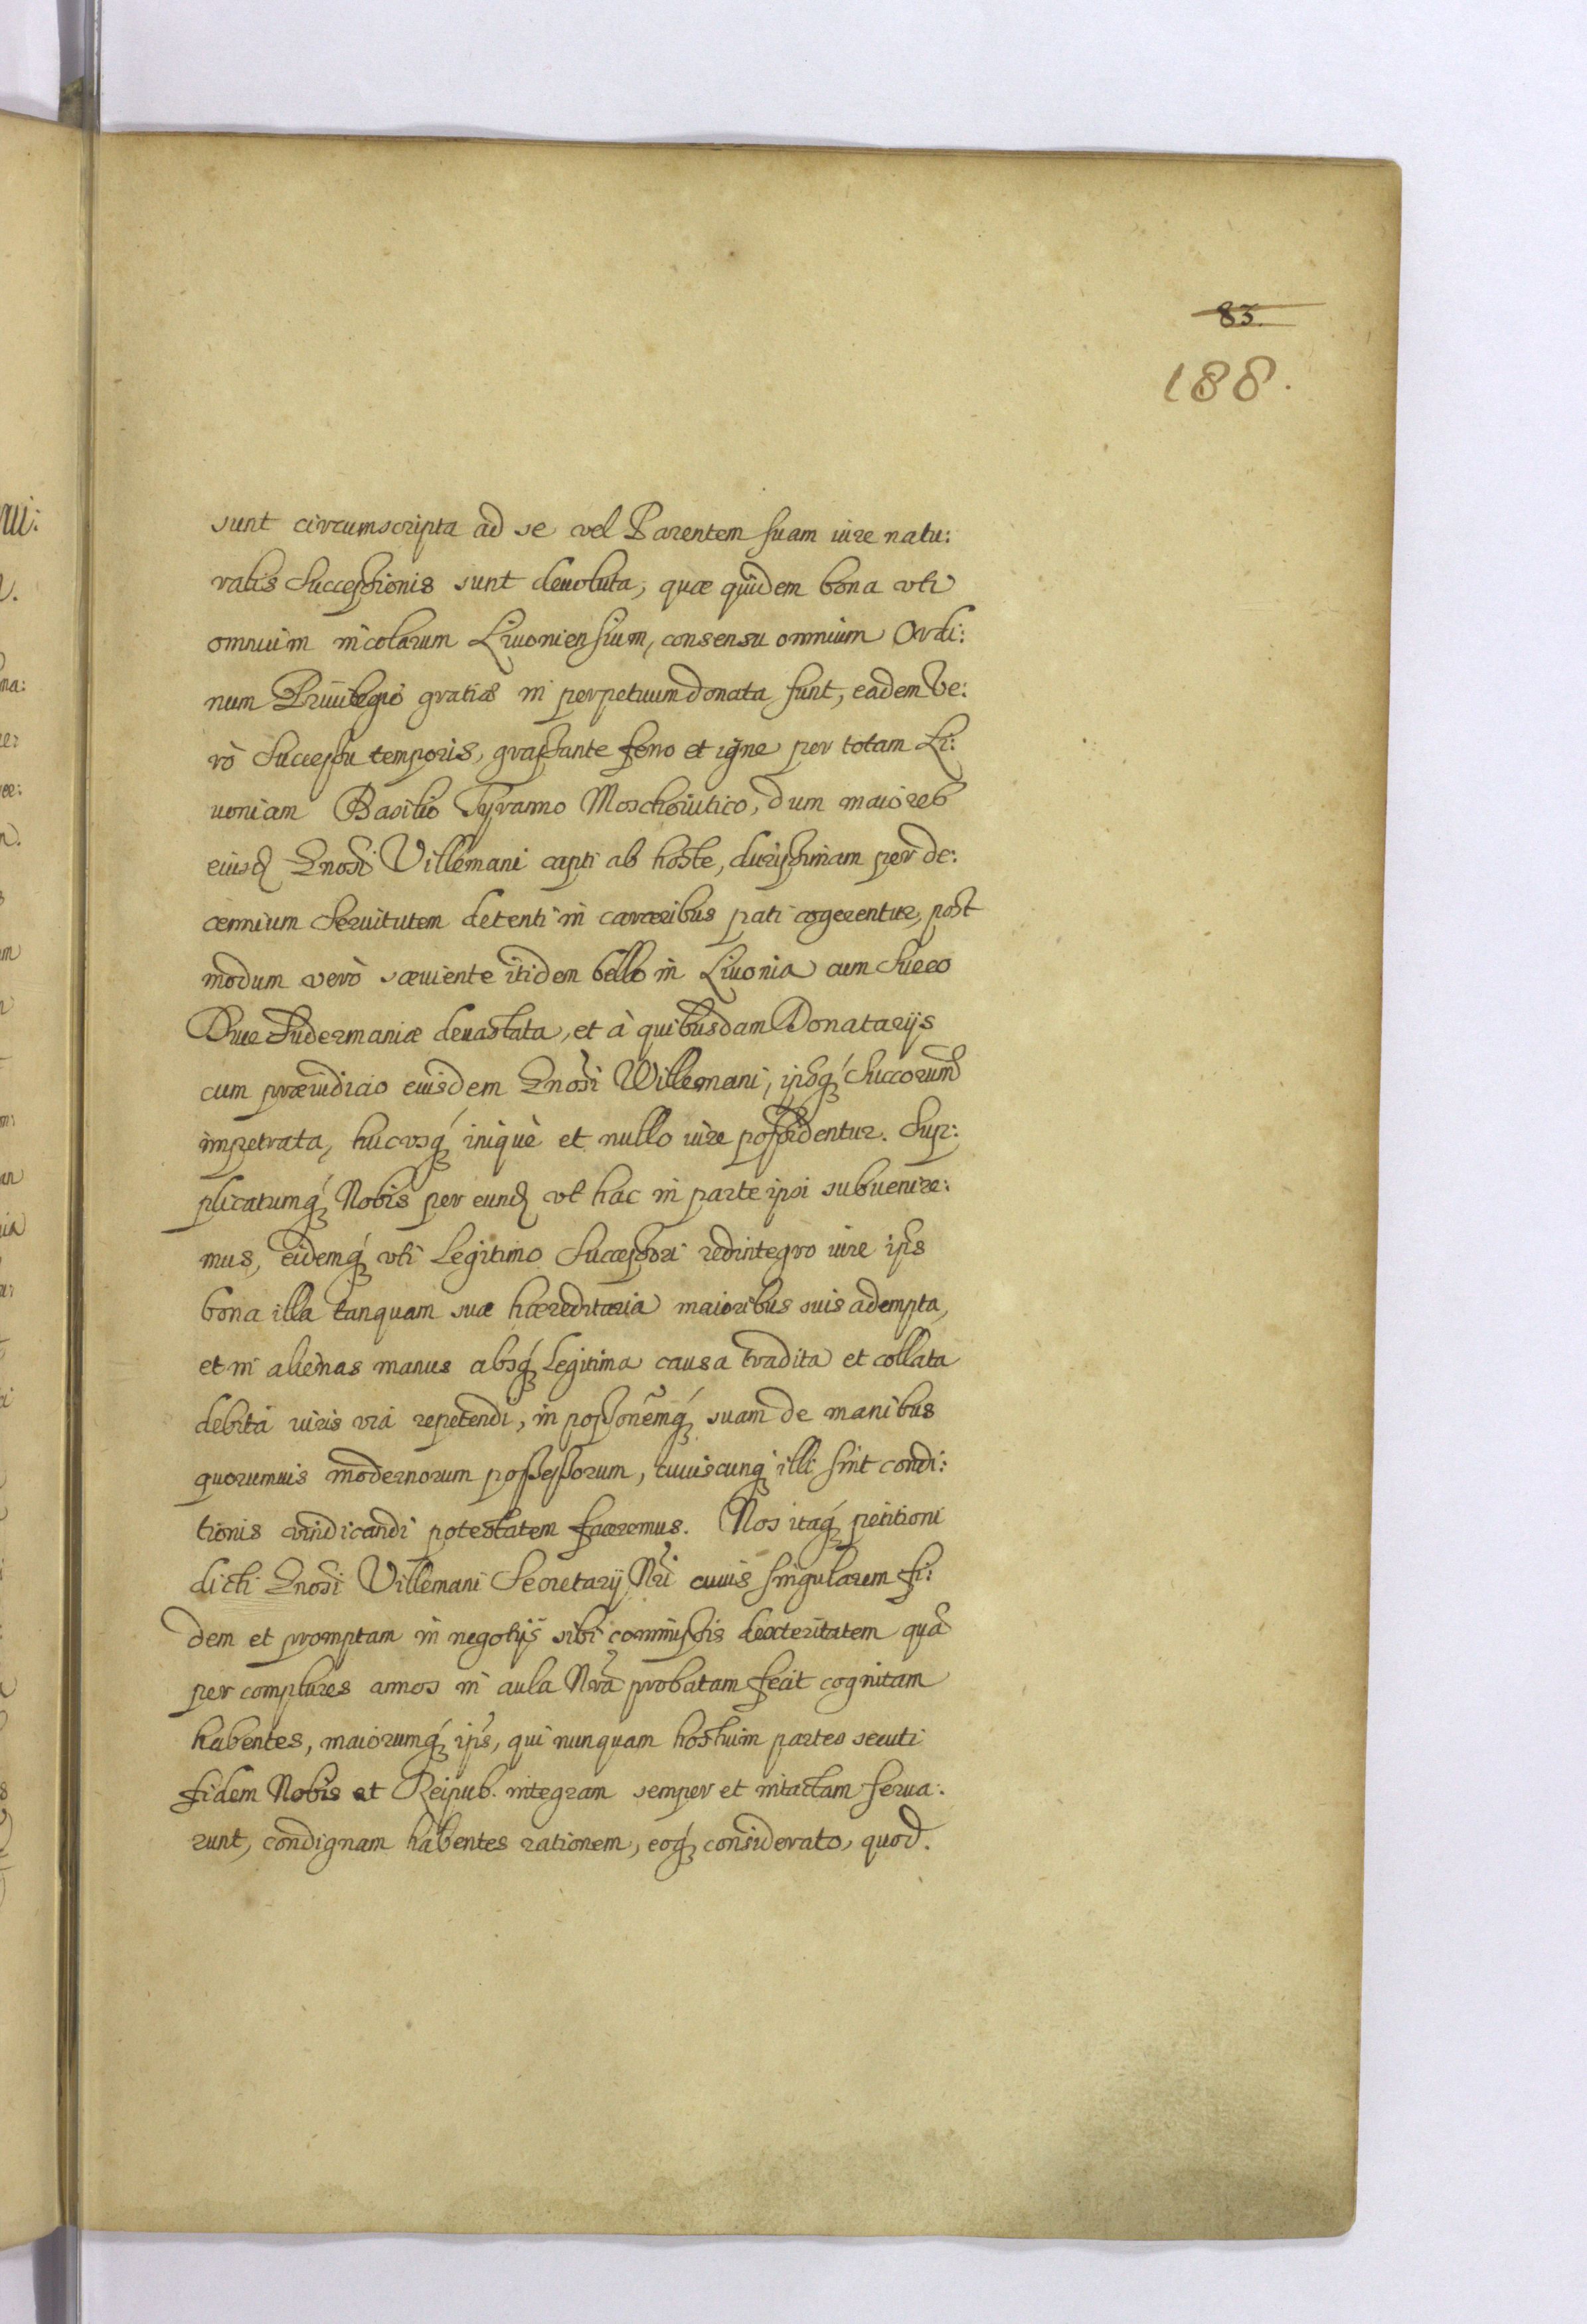 83.
188.
sunt circumscripta ad se vel Parentem suam iure natu:
ralis Successionis sunt deuoluta, quæ quidem bona vti
omnium incolarum Liuoniensium, consensu omnium Ordi:
num Priuilegio gratiæ in perpetuum donata sunt, eadem ve:
rò Successu temporis, grassante ferro et igne per totam Li:
uoniam Basilio Tyranno Moschouitico, dum maiores
eiusd Gnosi Villemani capti ab hoste, durissimam per de:
cennium Seruitutem detenti in carceribus pati cogerentur, post
modum verò sæuiente itidem bello in Liuonia cum Sueco
Duce Sudermaniæ deuastata, et à quibusdam Donatarijs
cum præiudicio eiusdem Gnosi Willemani, ipsoq́ Succorum
impetrata, hucvsq́ iniquè et nullo iure possidentur. Sup:
plicatumq́ Nobis per eund vt hac in parte ipsi subuenire:
mus, eidemq́ vti Legitimo Successori redintegro iure ips
bona illa tanquam suæ hæreditaria maioribus suis adempta,
et in alienas manus absq́ Legitima causa tradita et collata
debitá iuris viá repetendi, in possonemq́ suam de manibus
quorumuis modernorum possessorum, cuiuscunq illi sint condi:
tionis vindicandi potestatem faceremus. Nos itaq́ petitioni
dicti Gnosi Villemani Secretarij Nri cuius singularem fi:
dem et promptam in negotijs sibi commissis dexteritatem quā
per complures annos in aula Nra probatam fecit cognitam
habentes, maiorumq́ ips, qui nunquam hostium partes secuti
fidem Nobis et Reipub. integram semper et intactam serua:
runt, condignam habentes rationem, eoq́ considerato, quod.